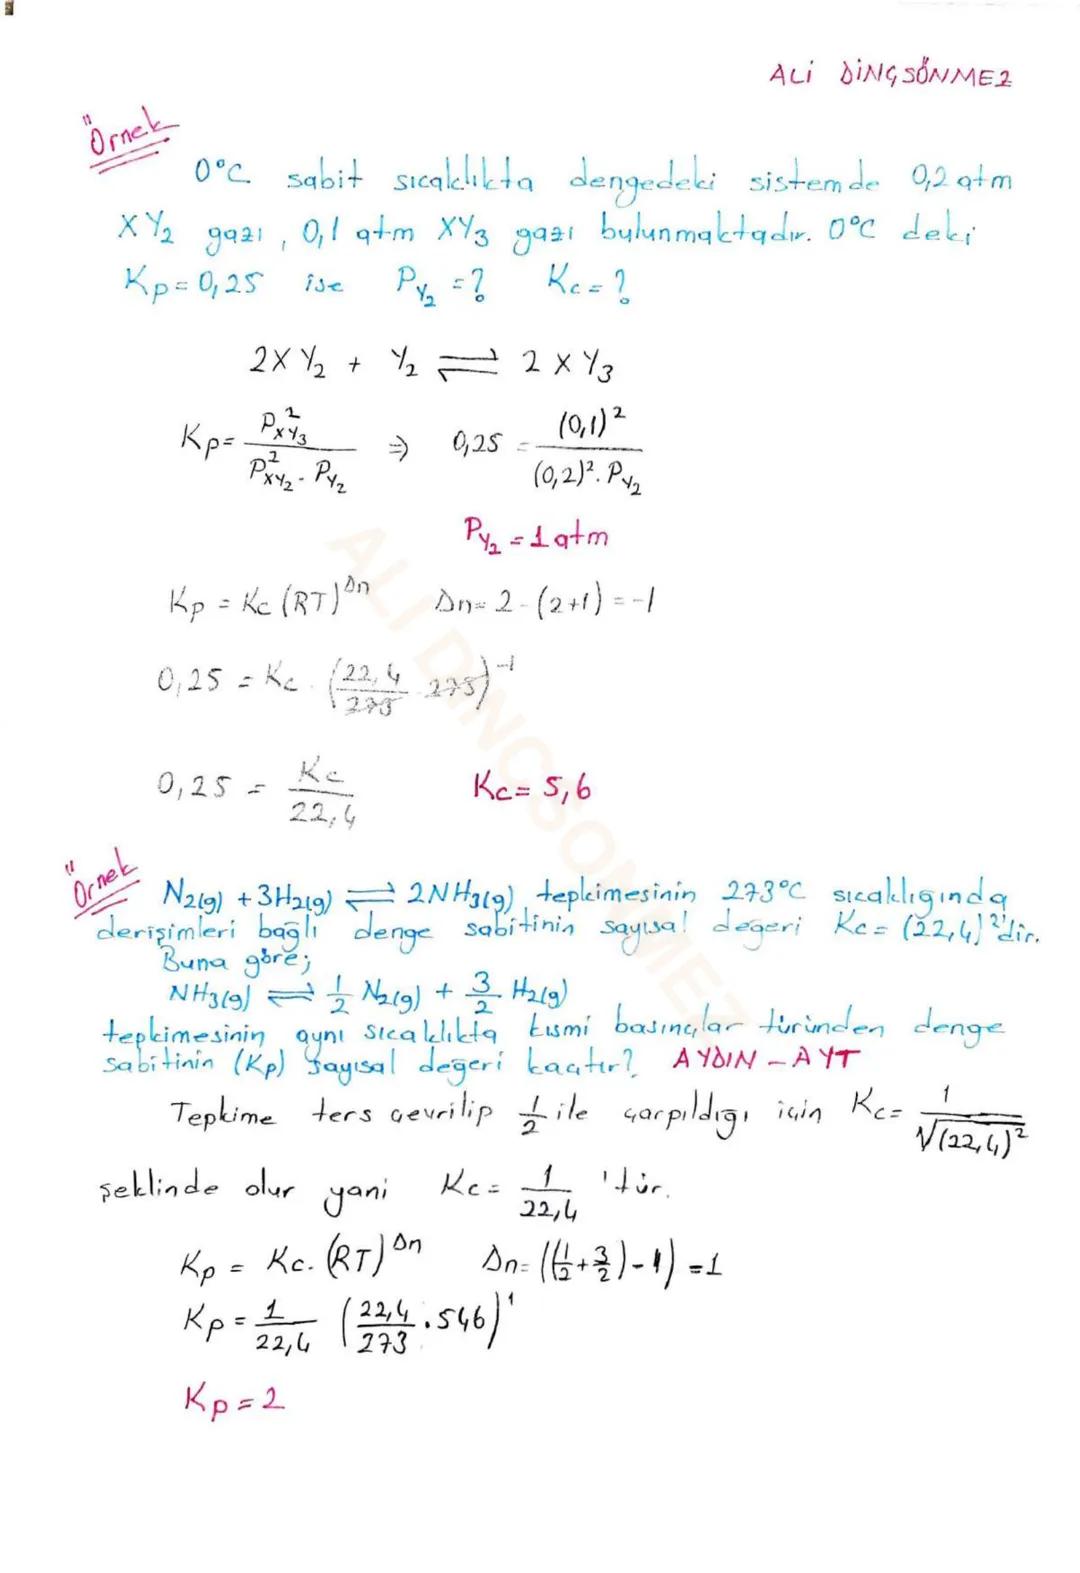 ALİ DİNÇSÖNMEZ
Örnek
0°C sabit sıcaklıkta dengedeki sistemde 0,2 atm
XY₂ gazı, 0,1 atm XY₃ gazı bulunmaktadır. 0°C deki
Kp = 0,25 ise P_Y₂ = ? Kc = ?
2XY₂ + Y₂ ⇌ 2XY₃
Kp = P²_XY₃ / P²_XY₂ . P_Y₂ ⇒ 0,25 = (0,1)² / (0,2)² . P_Y₂
P_Y₂ = 1 atm
Kp = Kc (RT)^Δn Δn = 2 - (2+1) = -1
0,25 = Kc . (22,4/273 . 273)^-1
0,25 = Kc / 22,4 Kc = 5,6
Örnek
N₂(g) + 3H₂(g) ⇌ 2NH₃(g) tepkimesinin 273°C sıcaklığında
derişimleri bağlı denge sabitinin sayısal değeri Kc = (22,4)²'dir.
Buna göre;
NH₃(g) ⇌ 1/2 N₂(g) + 3/2 H₂(g)
tepkimesinin aynı sıcaklıkta kısmi basınçlar türünden denge
sabitinin (Kp) sayısal değeri kaçtır? AYDIN - AYT
Tepkime ters çevrilip 1/2 ile çarpıldığı için Kc = 1/√(22,4)²
şeklinde olur yani Kc = 1/22,4 'tür.
Kp = Kc . (RT)^Δn Δn = ((1/2 + 3/2) - 1) = 1
Kp = 1/22,4 (22,4/273 . 546)^1
Kp = 2
ALİ DİNÇSÖNMEZ